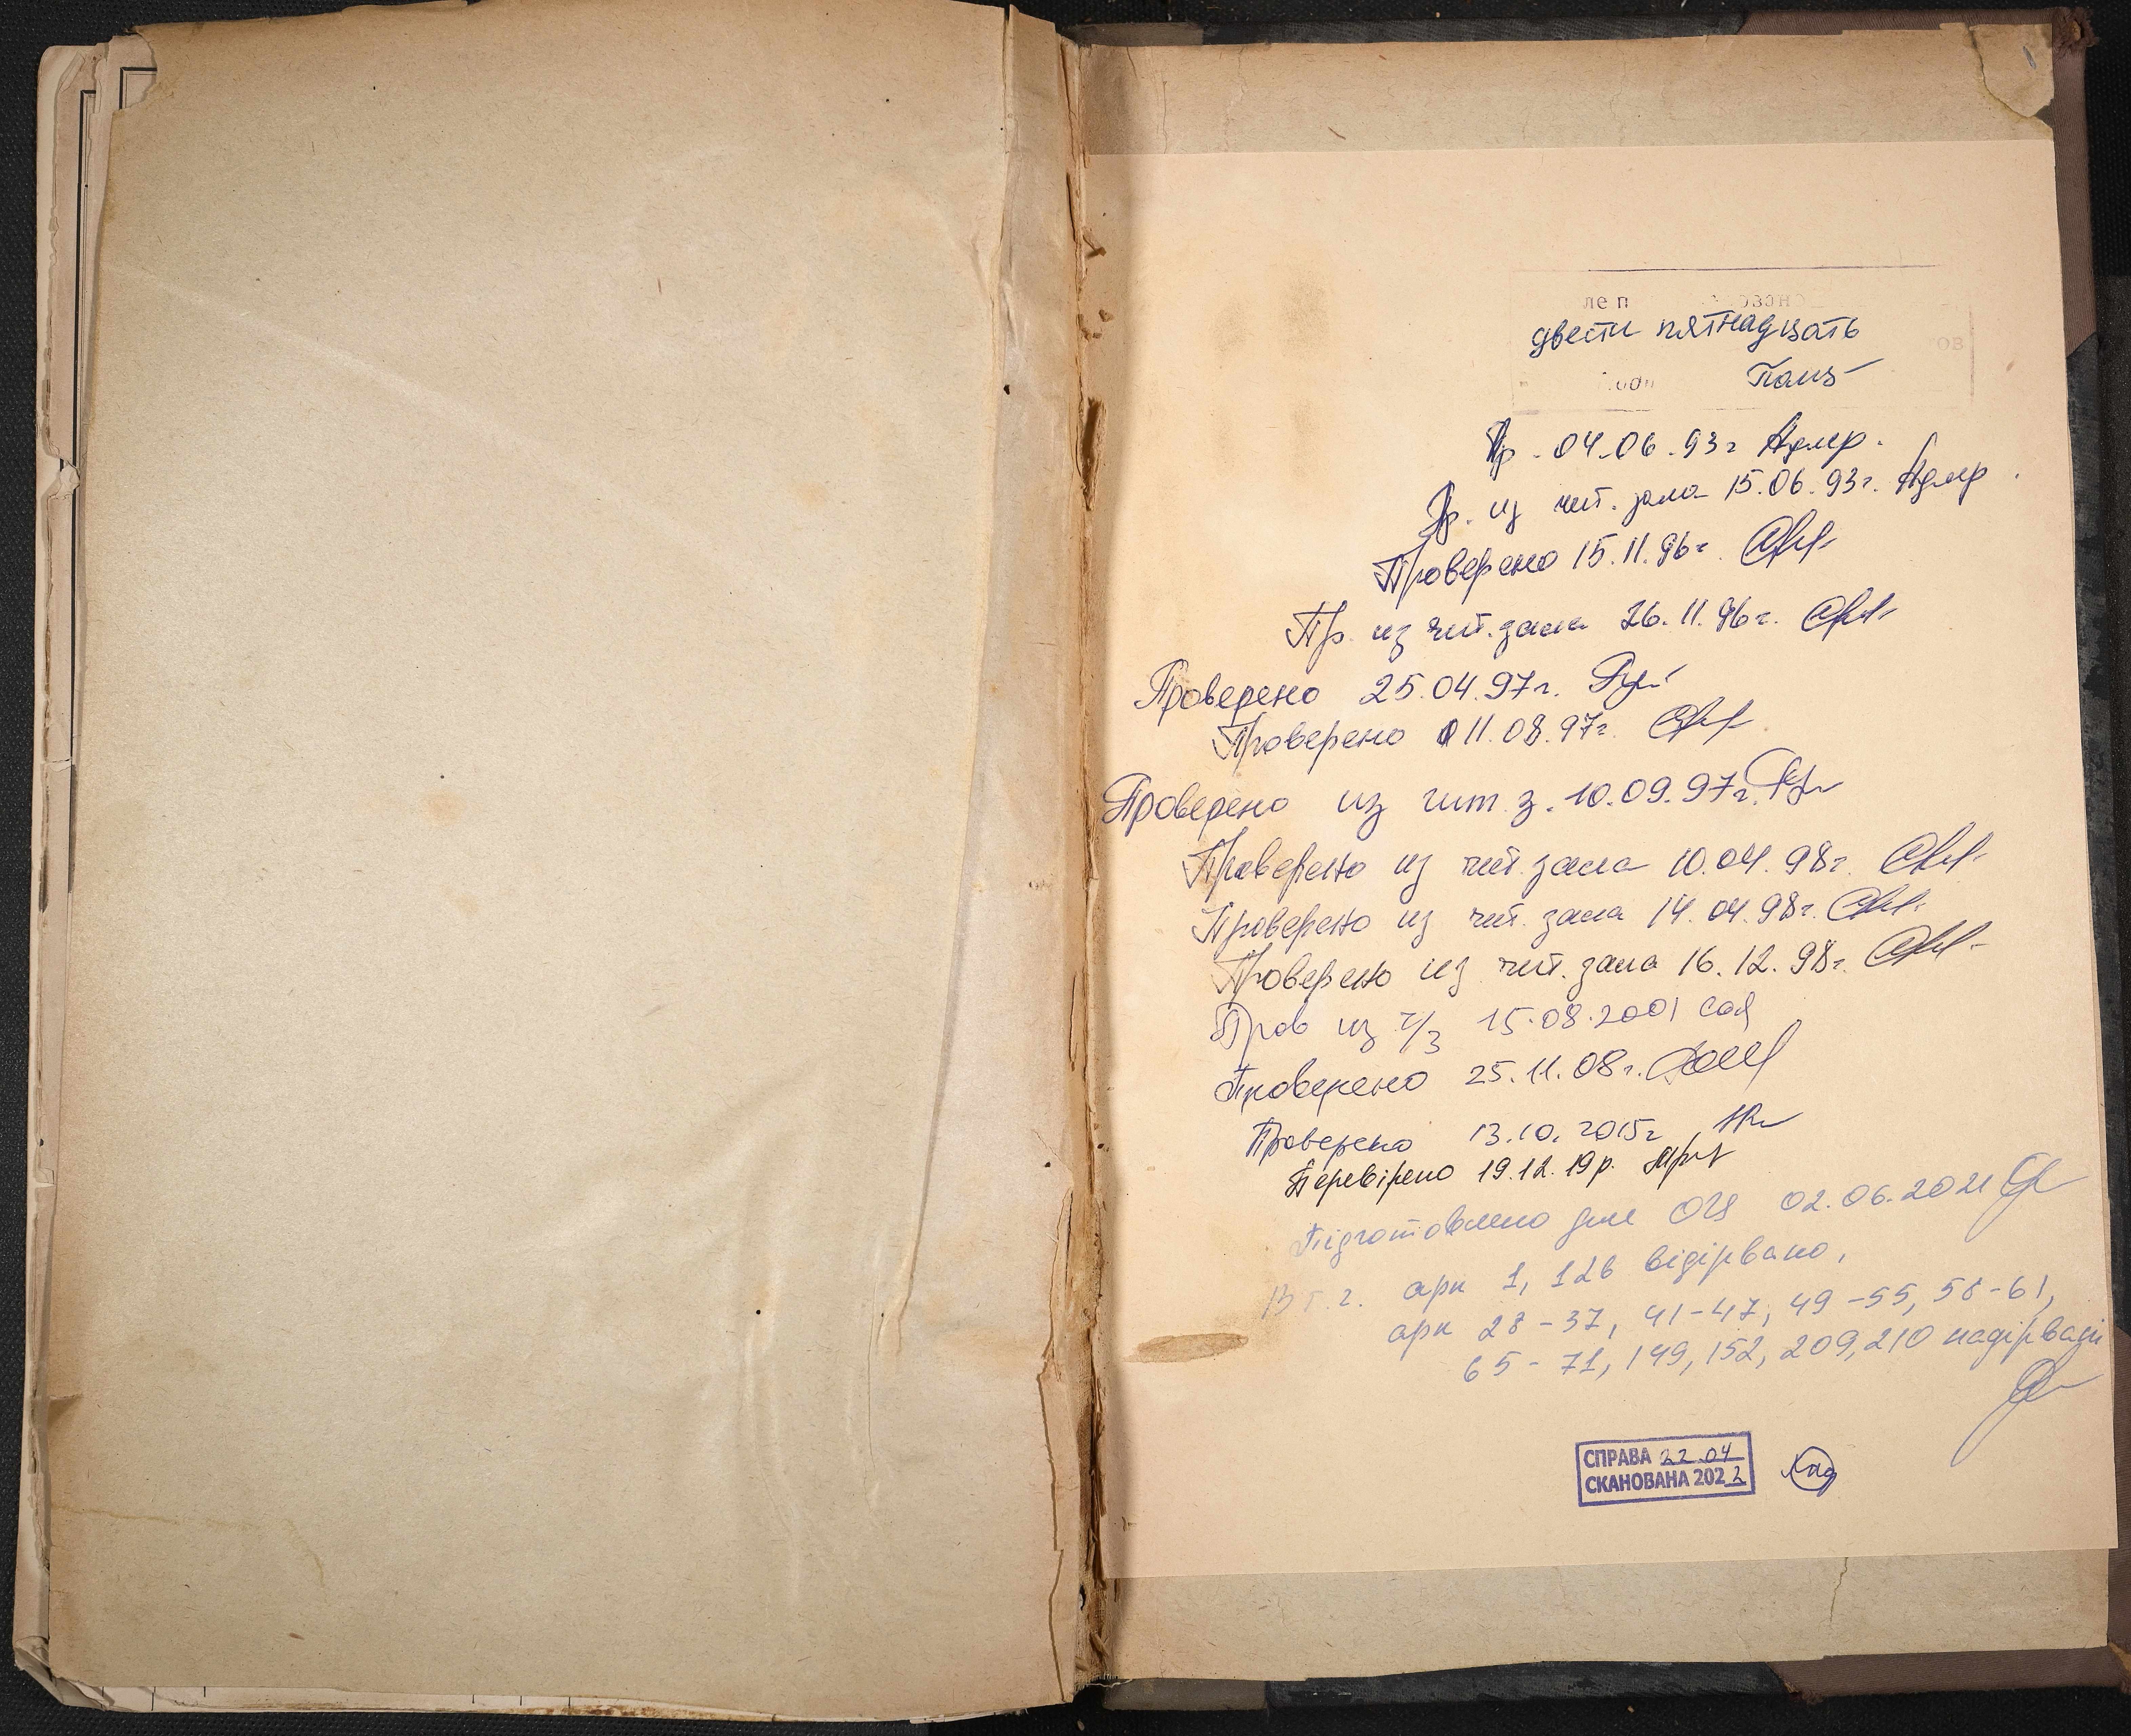 двести пятнадцать
Пр. 04.06.93г
Пр. из чит. зала 15.06.93г.
Проверено 15.11.96г.
Пр. из чит. зала 26.11.96г.
Проверено 25.04.97г.
Проверено 11.08.97г.
Проверено из чит. з. 10.09.97г.
Проверено из чит. зала 10.04.98г.
Проверено из чит. зала 14.04.98г.
Проверено из чит. зала 16.12.98г.
Пров из ч/з 15.08.2001
Проверено 25.11.08г.
Проверено 13.10.2015г
Перевірено 19.12.19р.
Підготовлено для ОЦ 02.06.2021
В т.ч. арк 1, 126 відірвано,
арк 28-37, 41-47, 49-55, 58-61,
65-71, 149, 152, 209, 210 надірвані
СПРАВА 22.04
СКАНОВАНА 2022